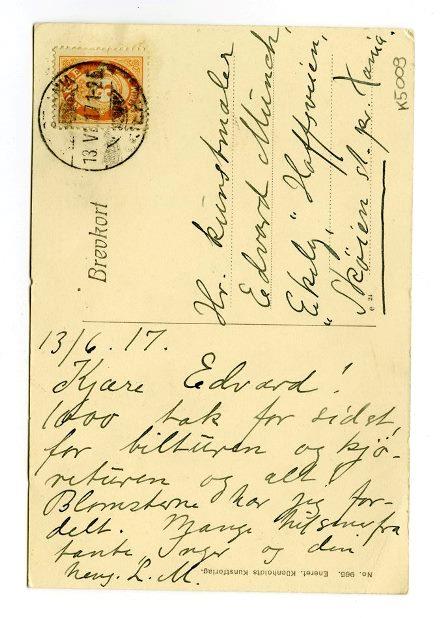 K5009
13 VI 17 1-2
Brevkort
Hr. kunstmaler
Edvard Munch,
"Ekely," Hoffsveien,
Skøien st. pr. Krania.
13/6. 17.
Kjære Edvard!
1000 tak for sidst,
for bilturen og kjø-
returen og alt!
Blomsterne har jeg for-
delt. Mange hilsener fra
tante Inger og din
heng. L. M.
No. 965. Eneret. Küenholdts Kunstforlag.